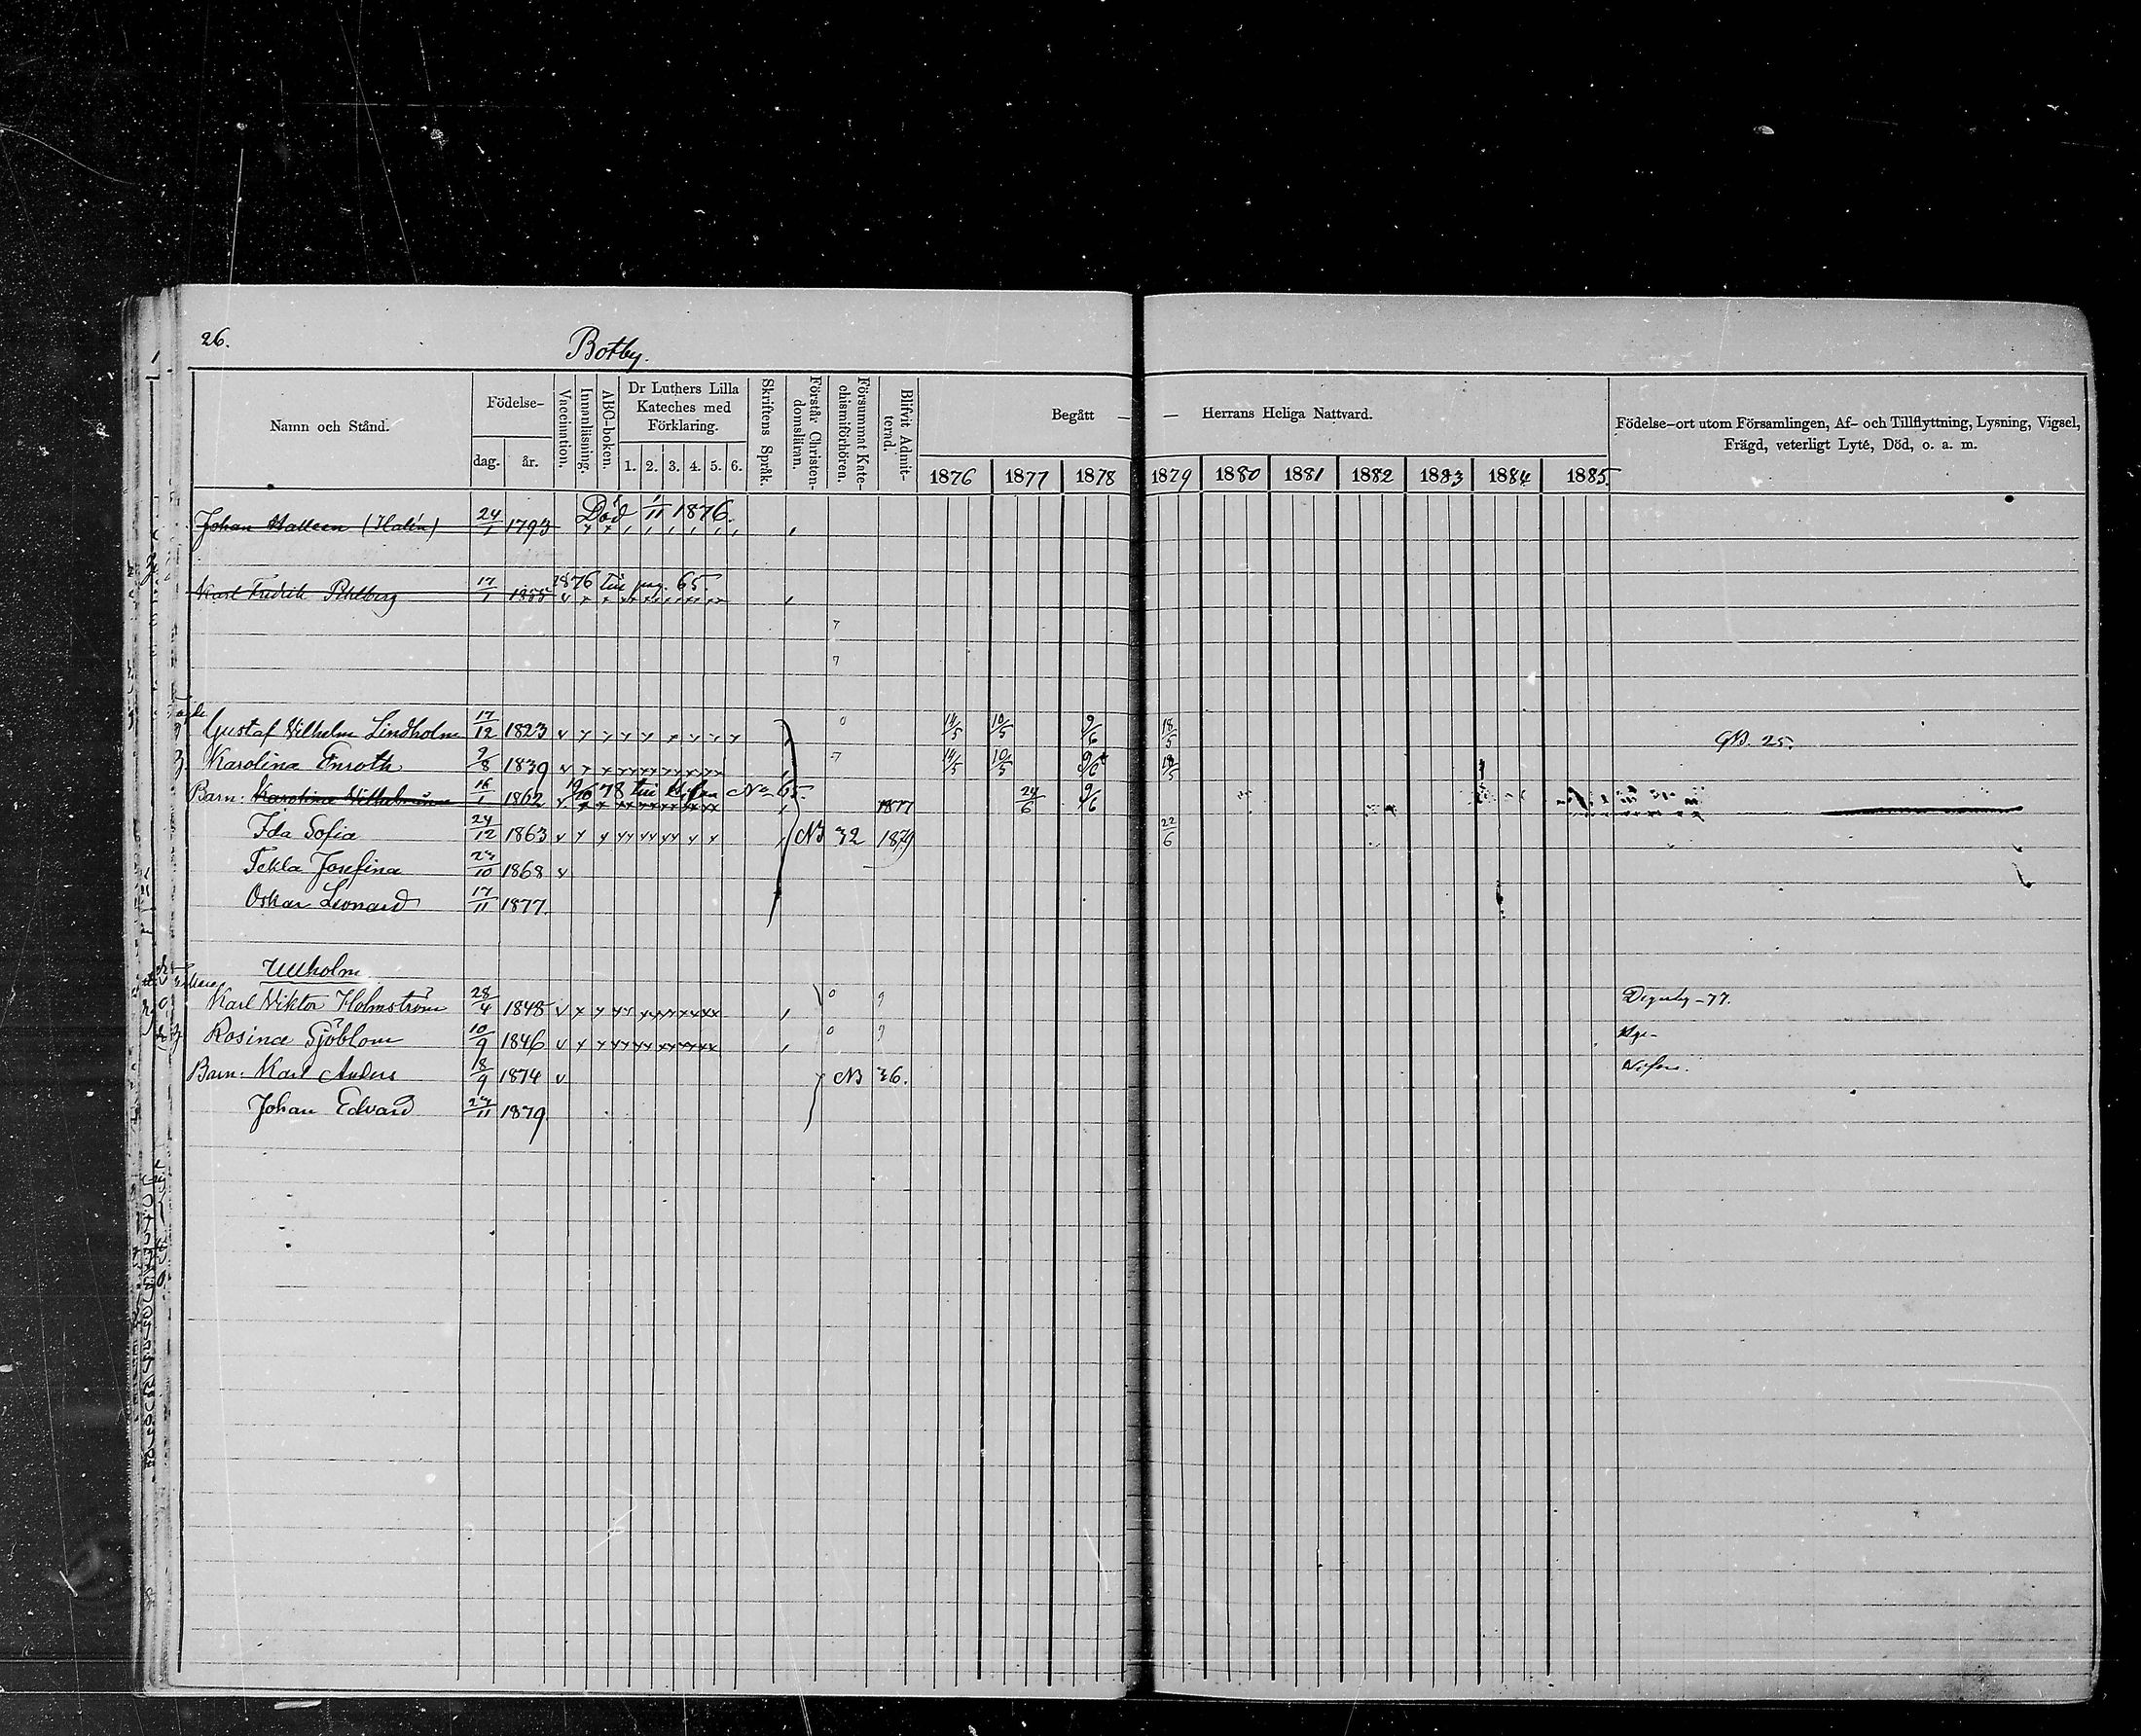 26.
Botby.
Namn och Stånd.
Födelse-
dag. år.
Vaccination.
Innanläsning.
ABC-boken.
Dr Luthers Lilla Kateches med Förklaring.
1. 2. 3. 4. 5. 6.
Skriftens Språk.
Förstår Christen-domsläran.
Försummat Kate-chismiförhören.
Blifvit Admit-terad.
Begått — — Herrans Heliga Nattvard.
1876 1877 1878 1879 1880 1881 1882 1883 1884 1885
Födelse-ort utom Församlingen, Af- och Tillflyttning, Lysning, Vigsel,
Frägd, veterligt Lyte, Död, o. a. m.
Johan (Halén) 24/1 1793 Död 1/11 1876.
Karl Fredrik 17/1 1855 1876 pag. 65.
Gustaf Vilhelm Lindholm 17/12 1823 14/5 10/5 9/6 18/5 25.
Karolina Enroth 2/8 1839 14/5 10/5 9/6 18/5
Barn: Karolina Vilhelmina 16/1 1862 78 65. 1877 24/6 9/6
Ida Sofia 24/12 1863 NB 32 1879 22/6
Tekla Josefina 23/10 1868
Oskar Leonard 17/11 1877.
Ullholm
Karl Viktor Holmström 28/4 1848 Degerby - 77.
Rosina Sjöblom 10/9 1846
Barn: Karl Anders 18/9 1874 NB 36.
Johan Edvard 27/11 1879.